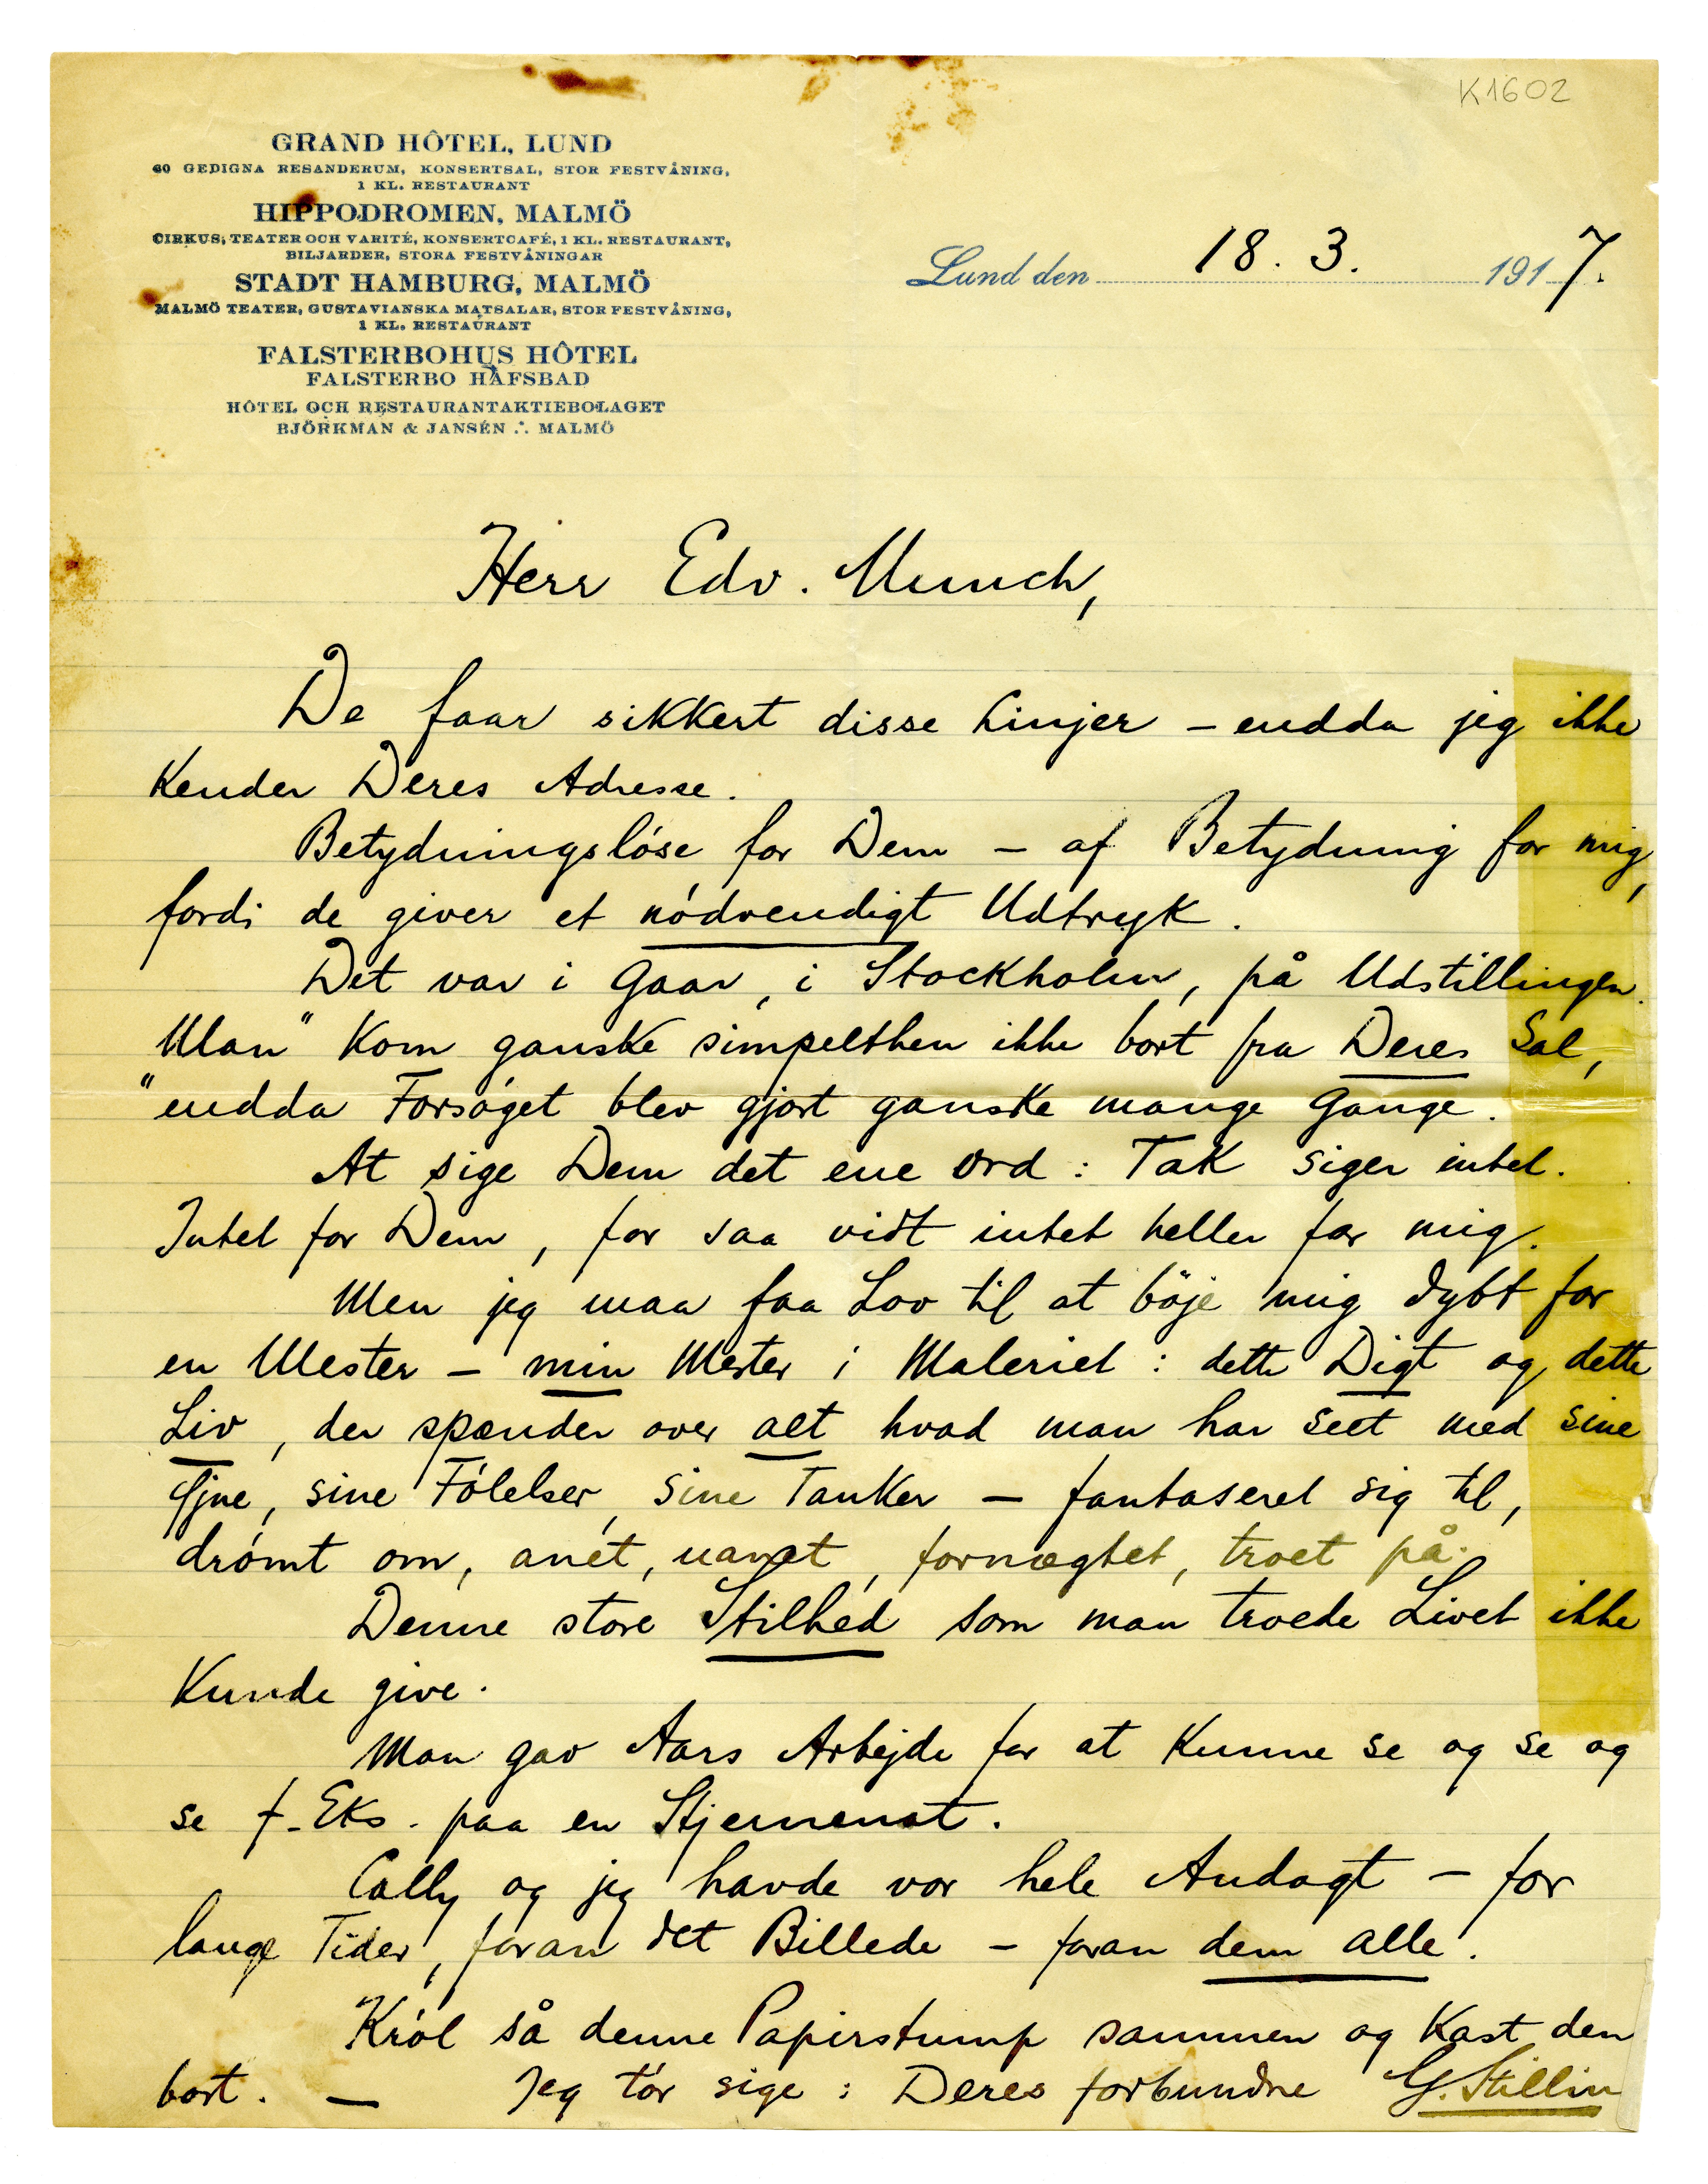 K1602
GRAND HÔTEL, LUND
60 GEDIGNA RESANDERUM, KONSERTSAL, STOR FESTVÅNING,
1 KL. RESTAURANT
HIPPODROMEN, MALMÖ
CIRKUS, TEATER OCH VARITÉ, KONSERTCAFÉ, 1 KL. RESTAURANT,
BILJARDER, STORA FESTVÅNINGAR
STADT HAMBURG, MALMÖ
MALMÖ TEATER, GUSTAVIANSKA MATSALAR, STOR FESTVÅNING,
1 KL. RESTAURANT
FALSTERBOHUS HÔTEL
FALSTERBO HAFSBAD
HÔTEL OCH RESTAURANTAKTIEBOLAGET
BJÖRKMAN & JANSÉN ∴ MALMÖ
Lund den 18. 3. 1917.
Herr Edv. Munch,
De faar sikkert disse Linjer – endda jeg ikke
Kender Deres Adresse.
Betydningsløse for Dem – af Betydning for mig,
fordi de giver et nódvendigt Udtryk.
Det var i Gaar, i Stockholm, på Udstillingen.
"Man" Kom ganske simpelthen ikke bort fra Deres Sal,
endda Forsóget blev gjort ganske mange Gange.
At sige Dem det ene Ord: Tak siger intet.
Intet for Dem, for saa vidt intet heller for mig.
Men jeg maa faa Lov til at böje mig dybt for
en Mester – min Mester i Maleriet: dette Digt og dette
Liv, der spænder over alt hvad man har seet med sine
Øjne, sine Fólelser, sine Tanker – fantaseret sig til,
drómt om, anet, uanet, fornægtet, troet på.
Denne store Stilhed som man troede Livet ikke
Kunde give.
Man gav Aars Arbejde for at Kunne se og se og
se f. Eks. paa en Stjernenat.
Cally og jeg havde vor hele Andagt – for
lange Tider, foran det Billede – foran dem alle.
Król så denne Papirstump sammen og Kast den
bort. – Jeg tór sige: Deres forbundne G. Stillin